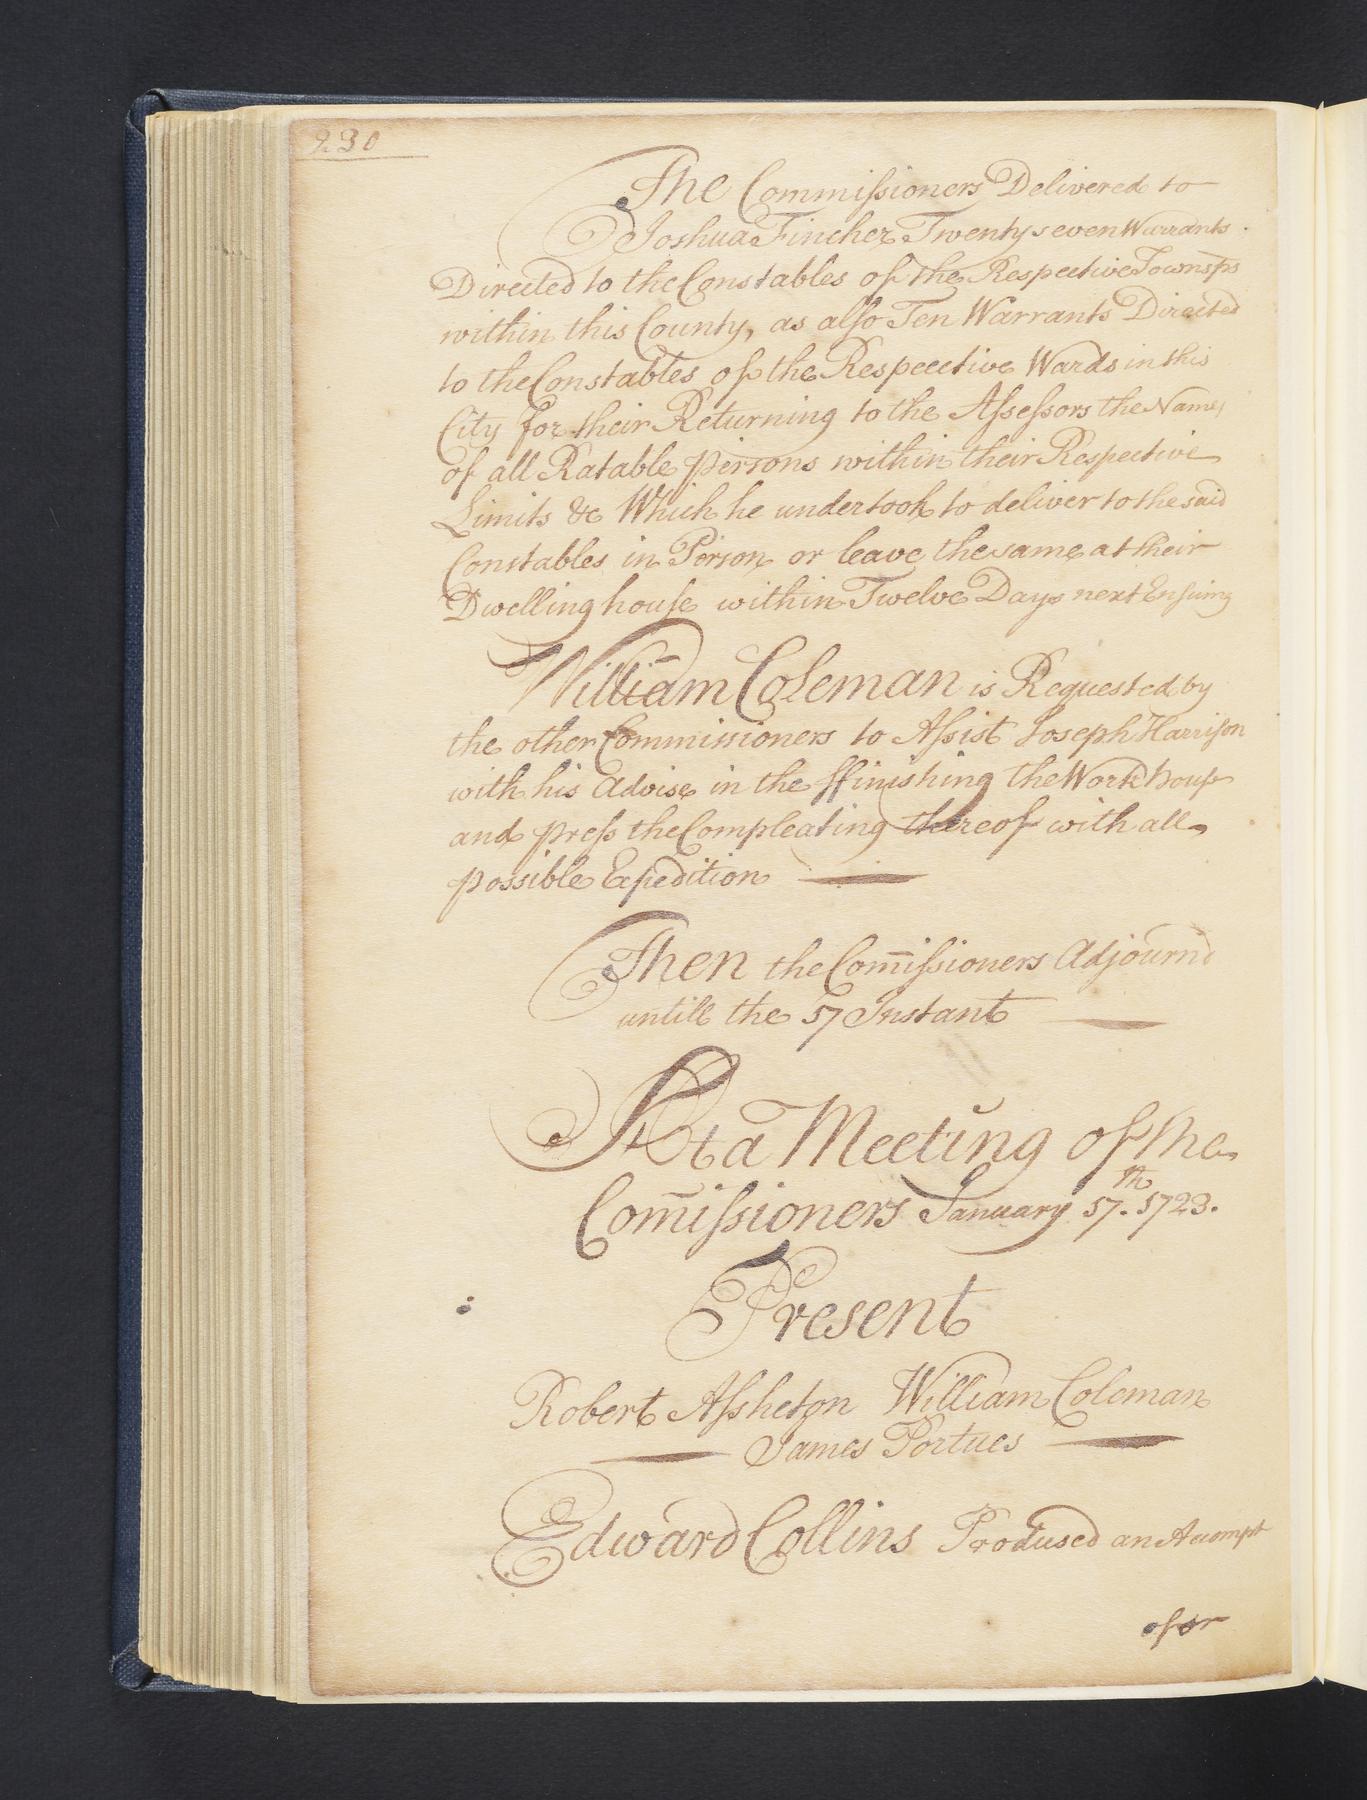 230
The Commissioners Delivered to
Joshua Fincher Twenty seven Warrants
Directed to the Constables of the Respective Townsps
within this County, as also Ten Warrants Directed
to the Constables of the Respecctive Wards in this
City for their Returning to the Assessors the Names
of all Ratable persons within their Respective
Limits &c Which he undertook to deliver to the said
Constables in Person or leave the same at their
Dwelling house within Twelve Days next Ensuing
William Coleman is Requested by
the other Commissioners to Assist Joseph Harrison
with his Advise in the ffinishing the Work house
and press the Compleating thereof with all
possible Expedition
Then the Com̄issioners Adjournd
untill the 17 Instant
At a Meeting of the
Com̄issioners January 17th. 1723.
Present
Robert Assheton William Coleman
James Portues
Edward Collins Prodused an Accompt
of or